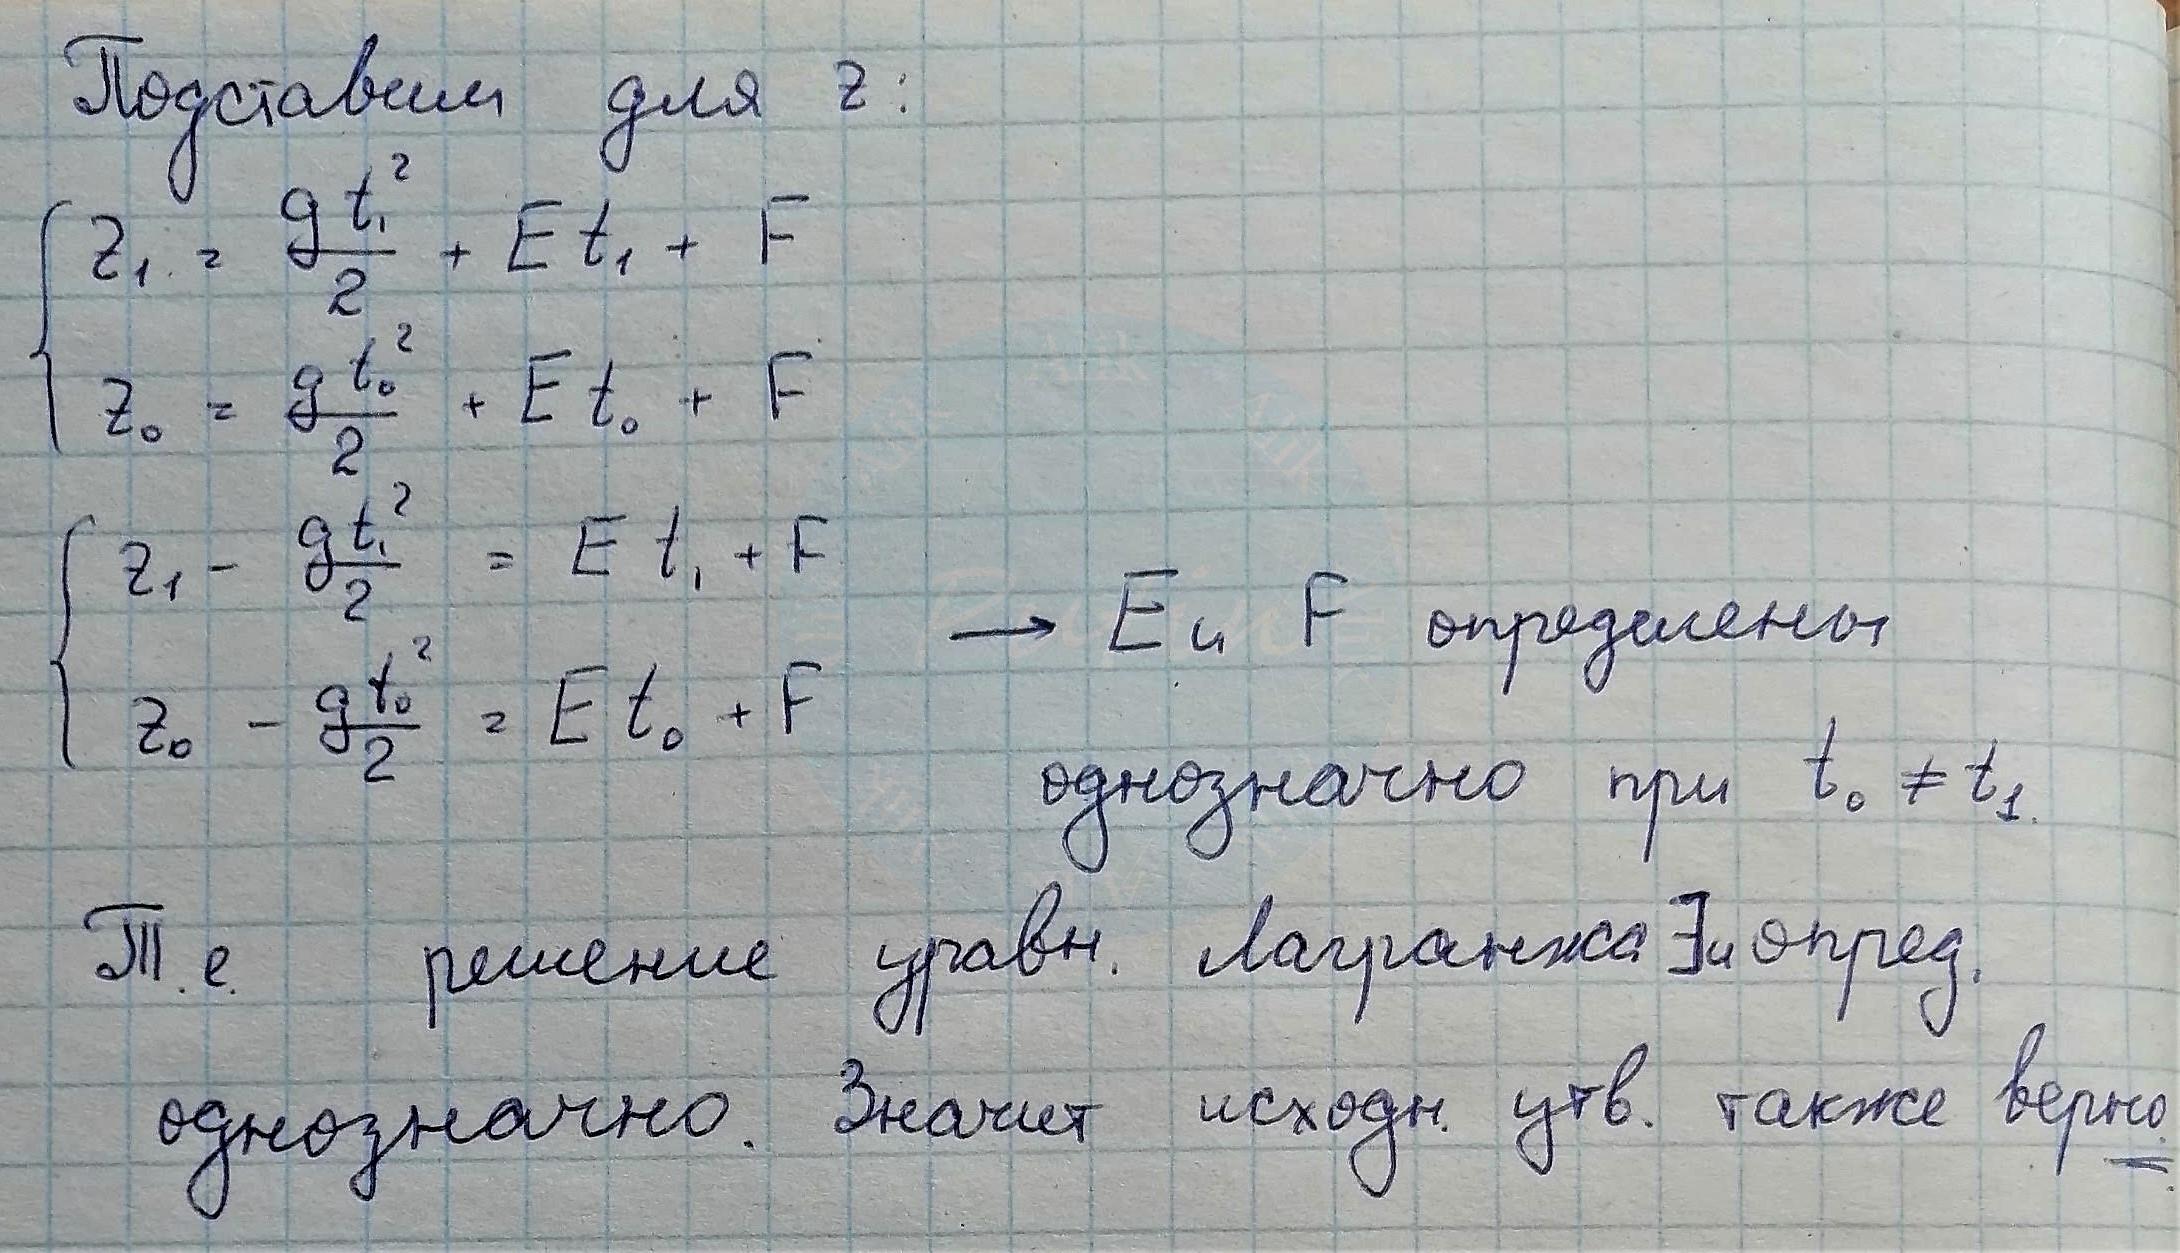 Подставим для z:
z₁ = gt₁²/2 + Et₁ + F
z₀ = gt₀²/2 + Et₀ + F
z₁ - gt₁²/2 = Et₁ + F
z₀ - gt₀²/2 = Et₀ + F
→ E и F определены
однозначно при t₀ ≠ t₁.
Т.е. решение уравн. Лагранжа ∃ и опред.
однозначно. Значит исходн. утв. также верно.